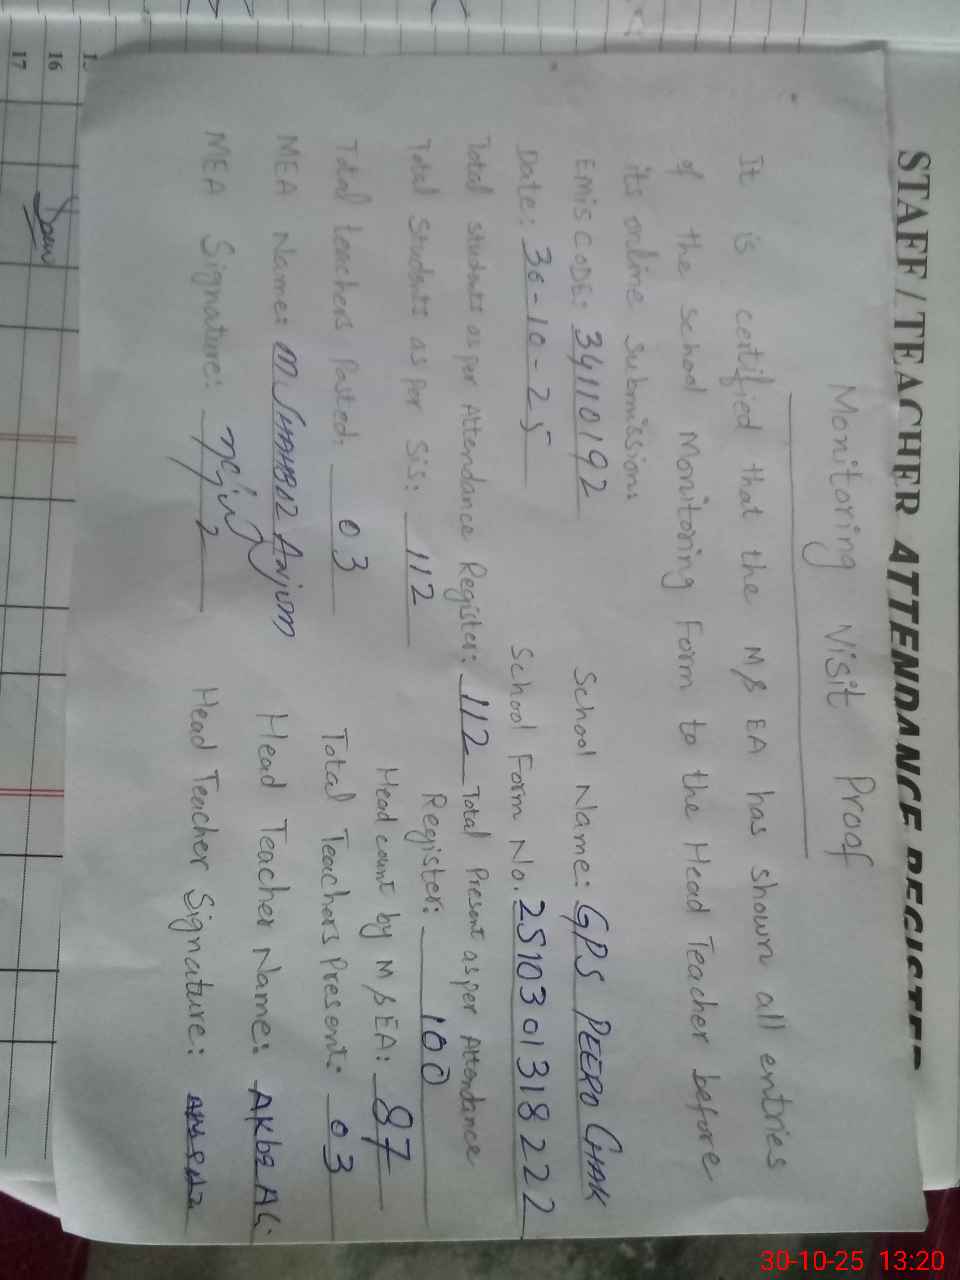 STAFF / TEACHER ATTENDANCE REGISTER
Monitoring Visit Proof
It is certified that the M&EA has shown all entries
of the school Monitoring Form to the Head Teacher before
its online submission.
EMIS CODE: 34110192 School Name: GPS PEERO CHAK
Date: 30-10-25 School Form No. 2510301318222
Total students as per Attendance Register: 112 Total Present as per Attendance Register: 100
Total Students as per SIS: 112 Head count by M&EA: 87
Total teachers Posted: 03 Total Teachers Present: 03
MEA Name: M. SHAHBAZ Anjum Head Teacher Name: AKbe Al:
MEA Signature: Head Teacher Signature:
16
17
30-10-25 13:20